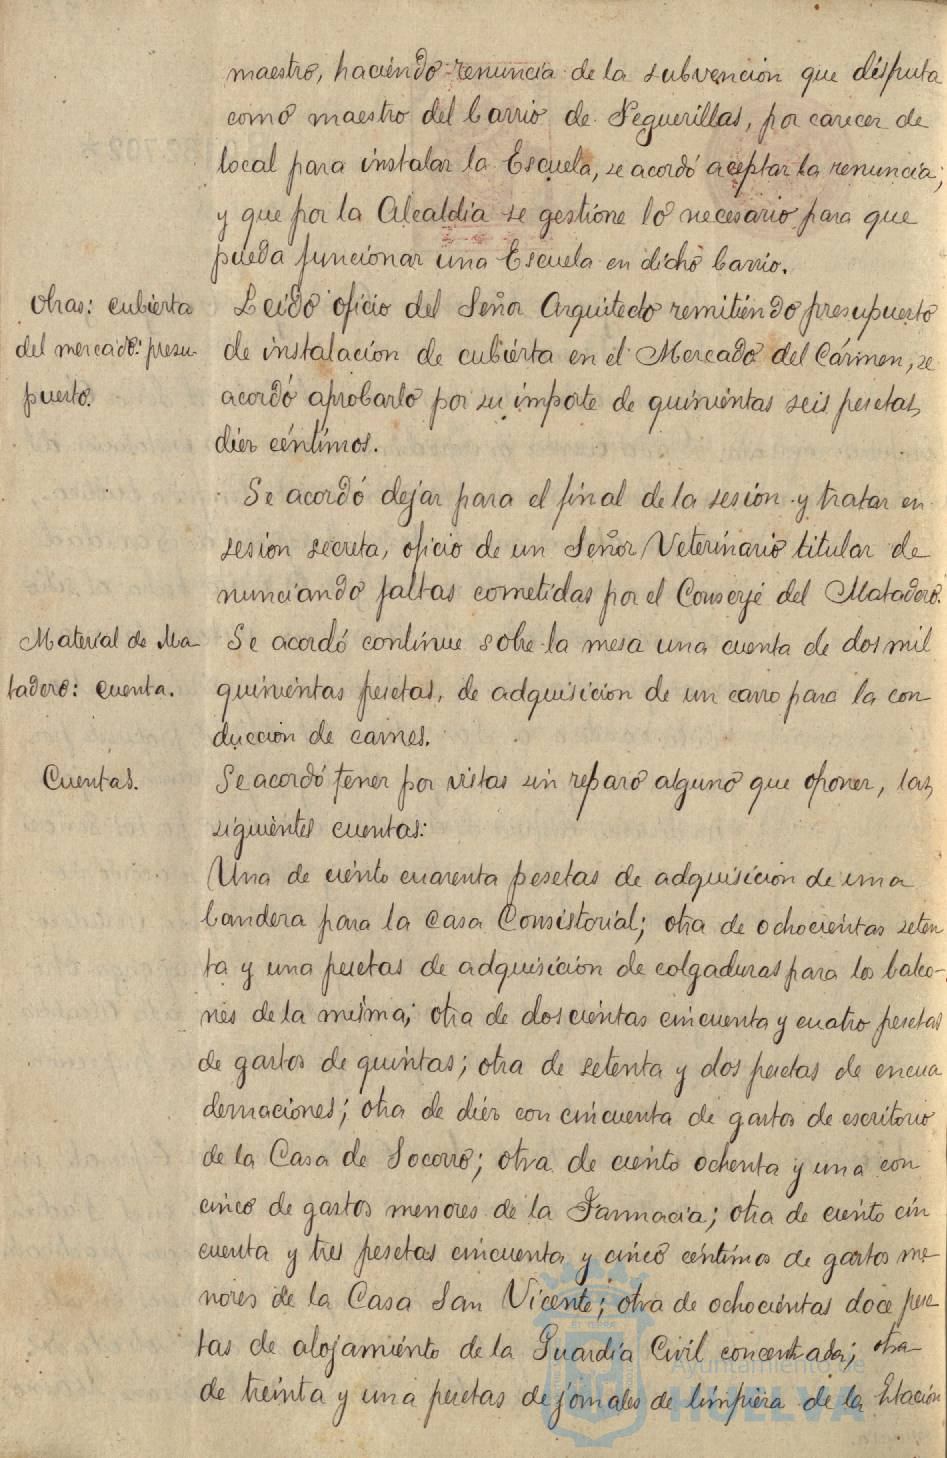 maestro, haciéndo renuncia de la subvención que disputa
como maestro del barrio de Peguerillas, por carecer de
local para instalar la Escuela, se acordó aceptar la renuncia;
y que por la Alcaldía se gestione lo necesario para que
pueda funcionar una Escuela en dicho barrio.
Obras: cubierta
del mercado: presu-
puesto.
Leido oficio del Señor Arquitecto remitiéndo presupuesto
de instalación de cubiérta en el Mercado del Cármen, se
acordó aprobarlo por su importe de quiniéntas seis pesetas
diéz céntimos.
Se acordó dejar para el final de la sesión y tratar en
sesión secreta, oficio de un Señor Veterinario titular de
nunciando faltas cometidas por el Conserje del Matadero.
Material de Ma-
tadero: cuenta.
Se acordó continue sobre la mesa una cuenta de dos mil
quiniéntas pesetas, de adquisición de un carro para la con
ducción de carnes.
Cuentas.
Se acordó tener por vistas sin reparo alguno que oponer, las
siguiéntes cuentas:
Una de ciénto cuarenta pesetas de adquisición de una
bandera para la Casa Consistorial; otra de ochociéntas seten
ta y una pesetas de adquisición de colgaduras para los balco-
nes de la misma; otra de dosciéntas cincuenta y cuatro pesetas
de gastos de quintas; otra de setenta y dos pesetas de encua
dernaciones; otra de diéz con cincuenta de gastos de escritorio
de la Casa de Socorro; otra de ciento ochenta y una con
cinco de gastos menores de la Farmacia; otra de ciento cin
cuenta y tres pesetas cincuenta y cinco céntimos de gastos me-
nores de la Casa San Vicente; otra de ochociéntas doce pese
tas de alojamiénto de la Guardia Civil concentrada; otra
de treinta y una pesetas de jornales de limpiéza de la Etación
Ayuntamiento de
HUELVA